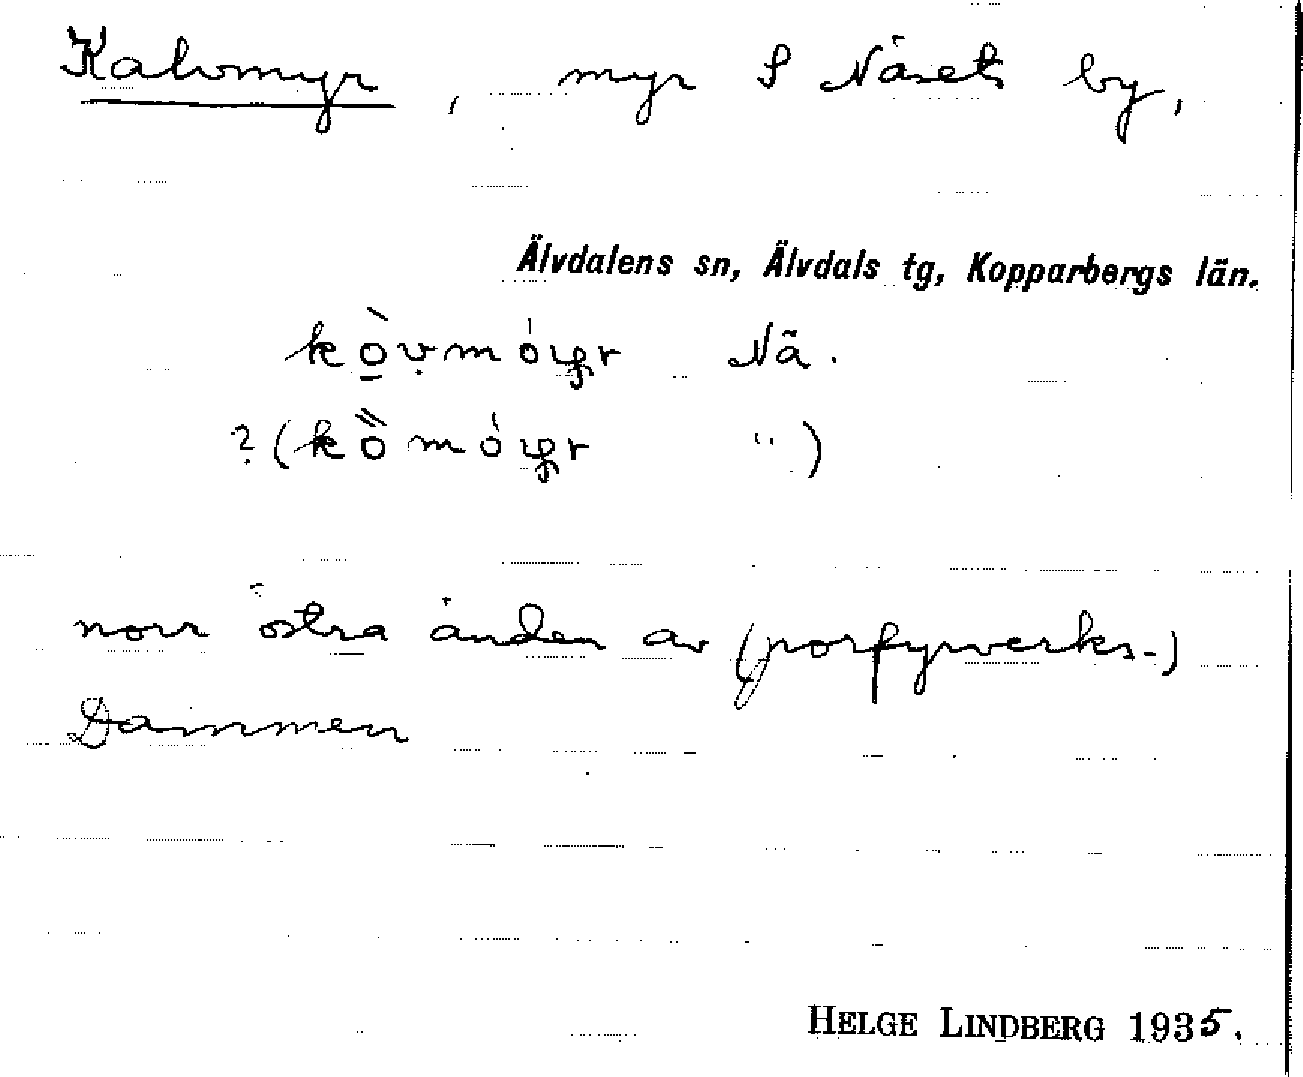 Kalvmyr, myr S Näsets by,
Älvdalens sn, Älvdals tg, Kopparbergs län.
Nä.
" )
norr östra änden av (porfyrverks-)
Dammen
HELGE LINDBERG 1935.